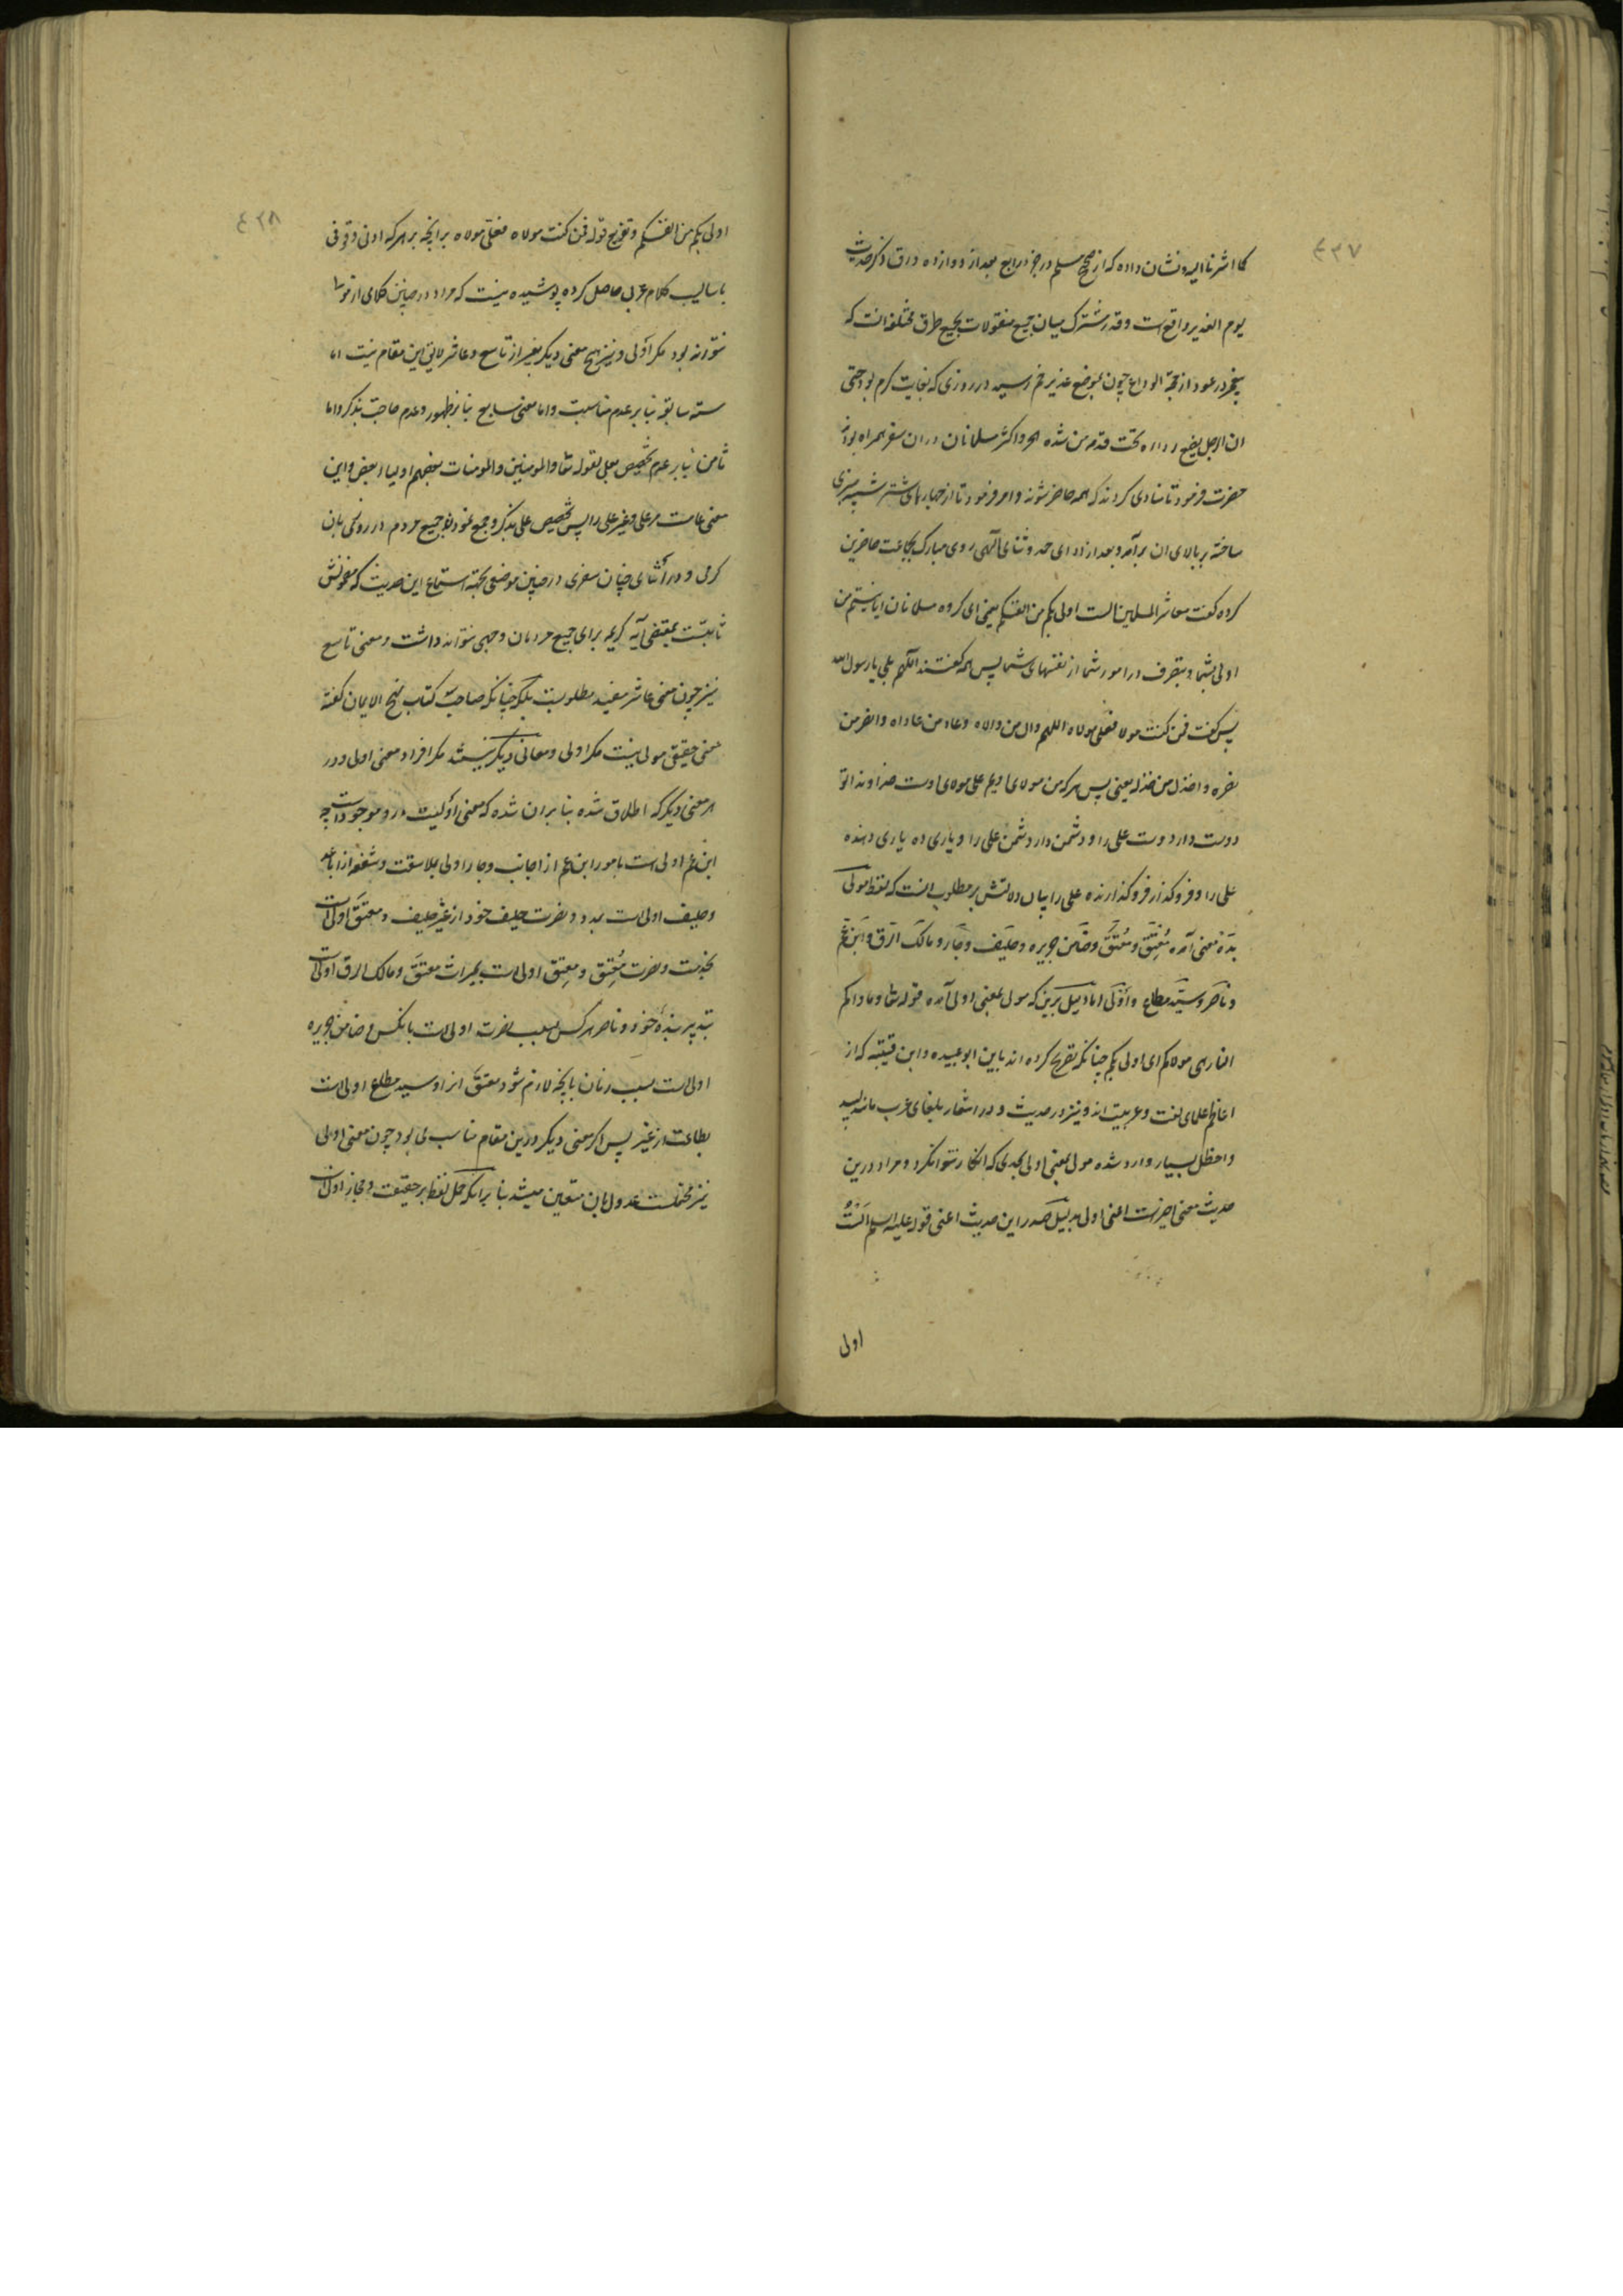 ٤٣٧
کما اشرنا الیه و نشان داده که از صحیح مسلم در جزء رابع بعد از دوازده ورق ذکر حدیث
یوم الغدیر واقع است و قدر مشترک میان جمیع منقولات بجمیع طرق مختلفه انست که
پیغمبر در عود از حجة الوداع چون بموضع غدیر خم رسید در روزی که بغایت گرم بود حتی
ان الرجل یضع رداءه تحت قدمه من شده الحر و اکثر مسلمانان در ان سفر همراه بودند
حضرت فرمود تا منادی کردند که همه حاضر شوند و امر فرمود تا از جهازهای شتر شبیه منبری
ساخته بر بالای ان برآمد و بعد از ادای حمد و ثنای الهی روی مبارک بجماعت حاضرین
کرده گفت معاشر المسلمین الست اولی بکم من انفسکم یعنی ای گروه مسلمانان ایا نیستم من
اولی بشما و بتصرف در امور شما از نفسهای شما پس همه گفتند اللهم بلی یا رسول الله
پس گفت فمن کنت مولاه فعلی مولاه اللهم وال من والاه و عاد من عاداه و انصر من
نصره و اخذل من خذله یعنی پس هر که من مولای اویم علی مولای اوست خداوندا تو
دوست دار دوست علی را و دشمن دار دشمن علی را و یاری ده یاری دهنده
علی را و فروگذار فروگذارنده علی را بیان دلالتش بر مطلوب انست که لفظ مولی
بده معنی آمده مُعتِق و مُعتَق و ضامن جریره و حلیف و جار و مالک الرق و ابن عم
و ناصر و سیّد مطاع و أولَی اما دلیل برین که مولی بمعنی اولی آمده قوله تعا و ماواکم
النار هی مولاکم ای اولی بکم چنانکه تصریح کرده اند باین ابو عبیده و ابن قتیبه که از
اعاظم علمای لغت و عربیت اند و نیز در حدیث و در اشعار بلغای عرب مانند لبید
و اخطل بسیار وارد شده مولی بمعنی اولی بحدی که انکار نتوان کرد و مراد درین
حدیث معنی اخیرست اعنی اولی بدلیل صدر این حدیث اعنی قوله علیه السلم الَستُ
اولی
٤٣٨
اولی بکم من انفسکم و تفریع قوله فمن کنت مولاه فعلی مولاه برانچه بر هر که ادنی وقوفی
باسالیب کلام عربی حاصل کرده پوشیده نیست که مراد در چنین کلامی از مولا
نتواند بود مگر أولی و نیز هیچ معنی دیگر بغیر از تاسع و عاشر لایق این مقام نیست اما
سته سابقه بنا بر عدم مناسبت و اما معنی سابع بنا بر ظهور و عدم حاجت بذکر و اما
ثامن بنا بر عدم تخصیص بعلی لقوله تعا و المومنین و المومنات بعضهم اولیاء بعض و این
معنی عامست مر علی و غیر علی را پس تخصیص علی بذکر و جمع نمودن جمیع مردم در روزی بان
گرمی و در أثنای چنان سفری در چنین موضعی بجهة استماع این حدیث که مضمونش
ثابتست بمقتضی آیه کریمه برای جمیع مردمان وجهی نتواند داشت و معنی تاسع
نیز چون معنی عاشر مفید مطلوبست بلکه چنانکه صاحب کتاب نهج الایمان گفته
معنی حقیقی مولی نیست مگر اولی و معانی دیگر نیستند مگر افراد معنی اولی و در
هر معنی دیگر که اطلاق شده بنا بران شده که معنی أولیت در و موجودست چه
ابن عم اولی است بامور ابن عم از اجانب و جار اولی بملاصقت و شفعه از اباعد
و حلیف اولی است بمدد و نصرت حلیف خود از غیر حلیف و معتَق اولی است
بخدمت و نصرت مُعتِق و معتِق اولی است بمیراث معتَق و مالک الرق اولی است
بتدبیر بندهٔ خود و ناصر هر کس بسبب نصرت اولی است بانکس و ضامن جریره
اولی است بسبب ضمان بانچه لازم شود معتَق انرا و سید مطاع اولی است
بطاعت از غیر پس اگر معنی دیگر درین مقام مناسب می بود چون معنی اولی
نیز محتملست عدول بان متعین میشد بنا برانکه حمل لفظ بر حقیقت و مجاز اولی است